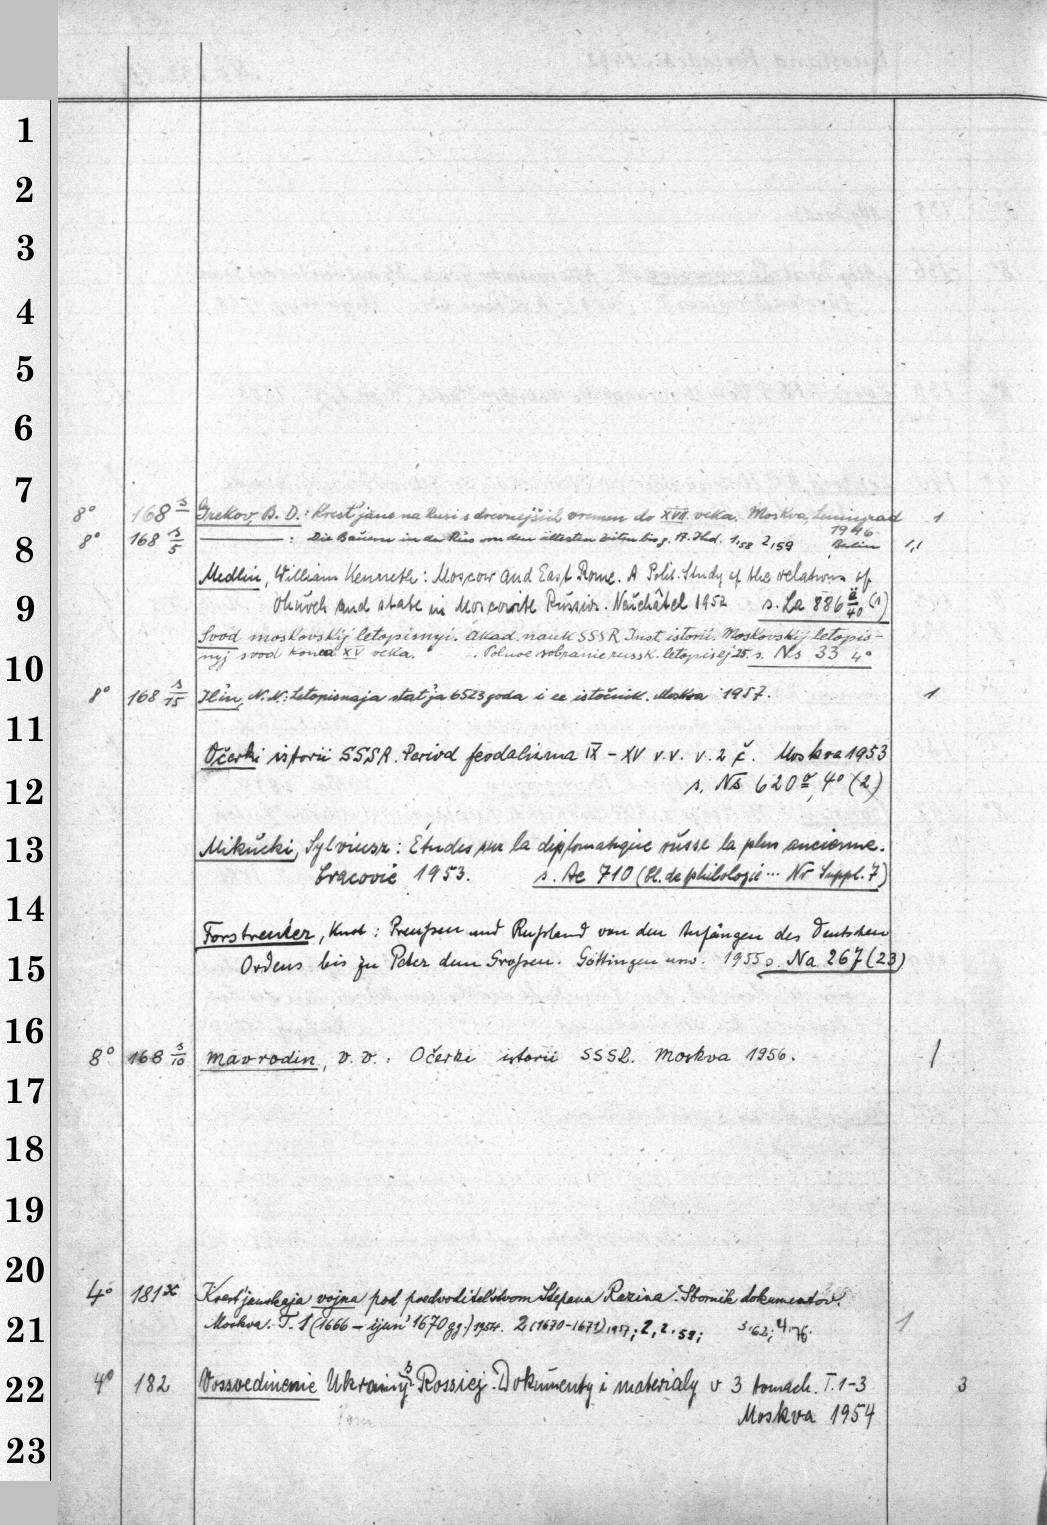 1
2
3
4
5
6
7
8° 168 s/- Grekov, B. D.: Krest'jane na Rusi s drevnejšich vremen do XVII veka. Moskva, Leningrad 1
1946.
8 8° 168 s/5 ———— : Die Bauern in der Rus von den ältesten Zeiten bis z. 17. Jhd. 1,58 2,59 Berlin 1,1
Medlin, William Kenneth: Moscow and East Rome. A Polit. Study of the relations of
9 Church and state in Moscovite Russia. Neuchâtel 1952 s. La 886 a/40 (1)
Svod moskovskij letopisnyi. Akad. nauk SSSR Inst. istorii. Moskovskij letopis-
10 nyj svod konca XV veka. Polnoe sobranie russk. letopisej 25 s. Ns 33 4°
8° 168 s/15 Il'in, N. N.: Letopisnaja stat'ja 6523 goda i ee istočnik. Moskva 1957. 1
11
Očerki istorii SSSR. Period feodalizma IX - XV v.v. v. 2 č. Moskva 1953
12 s. Ns 620 a, 4° (2)
13 Mikucki, Sylviusz: Études sur la diplomatique russe la plus ancienne.
Cracovie 1953. s. Ae 710 (Bl. de philologie ... Nr Suppl. 7)
14
Forstreuter, Kurt: Preußen und Rußland von den Anfängen des Deutschen
15 Ordens bis zu Peter dem Großen. Göttingen usw. 1955 s. Na 267 (23)
16
8° 168 s/10 Mavrodin, V. V.: Očerki istorii SSSR. Moskva 1956. 1
17
18
19
20
4° 181x Krest'janskaja vojna pod predvoditel'stvom Stepana Razina. Sbornik dokumentov.
21 Moskva. T. 1 (1666 - ijun' 1670 gg.) 1954. 2 (1670-1671) 1957; 2, 2. 59; 3.62; 4.76. 1
22 4° 182 Vossoedinenie Ukrainy s Rossiej. Dokumenty i materialy v 3 tomach. T. 1-3 3
Moskva 1954
23